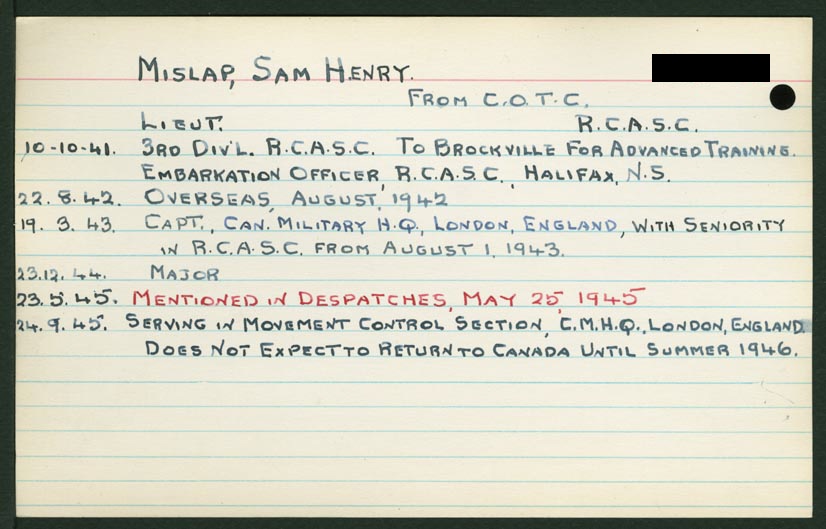 MISLAP, SAM HENRY.
FROM C.O.T.C.
LIEUT. R.C.A.S.C.
10-10-41. 3RD DIV'L. R.C.A.S.C. TO BROCKVILLE FOR ADVANCED TRAINING.
EMBARKATION OFFICER, R.C.A.S.C., HALIFAX, N.S.
22. 8. 42. OVERSEAS, AUGUST, 1942
19. 3. 43. CAPT., CAN. MILITARY H.Q., LONDON, ENGLAND, WITH SENIORITY
IN R.C.A.S.C. FROM AUGUST 1, 1943.
23.12. 44. MAJOR
23.5.45. MENTIONED IN DESPATCHES, MAY 25, 1945
24.9.45. SERVING IN MOVEMENT CONTROL SECTION, C.M.H.Q., LONDON, ENGLAND.
DOES NOT EXPECT TO RETURN TO CANADA UNTIL SUMMER 1946.